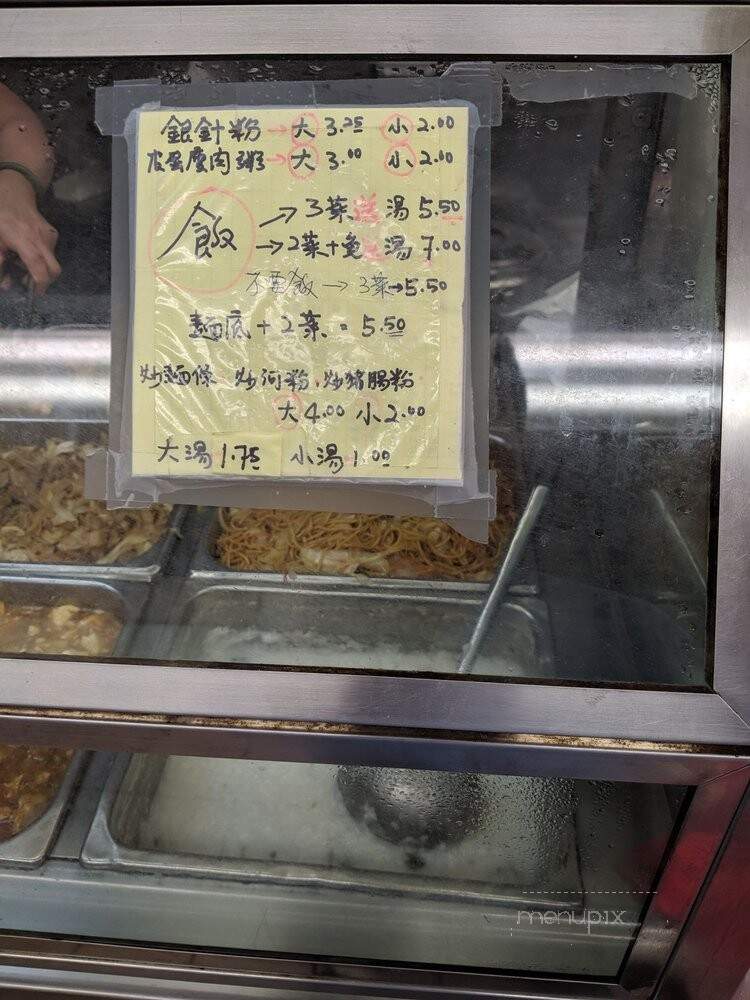 銀針粉→大 3.25 小 2.00
皮蛋瘦肉粥→大 3.00 小 2.00
飯 → 3菜送湯 5.50
→ 2菜+魚送湯 7.00
不要飯 → 3菜→5.50
麵底 + 2菜 = 5.50
炒麵條 炒河粉，炒豬腸粉
大 4.00 小 2.00
大湯 1.75 小湯 1.00
menupix